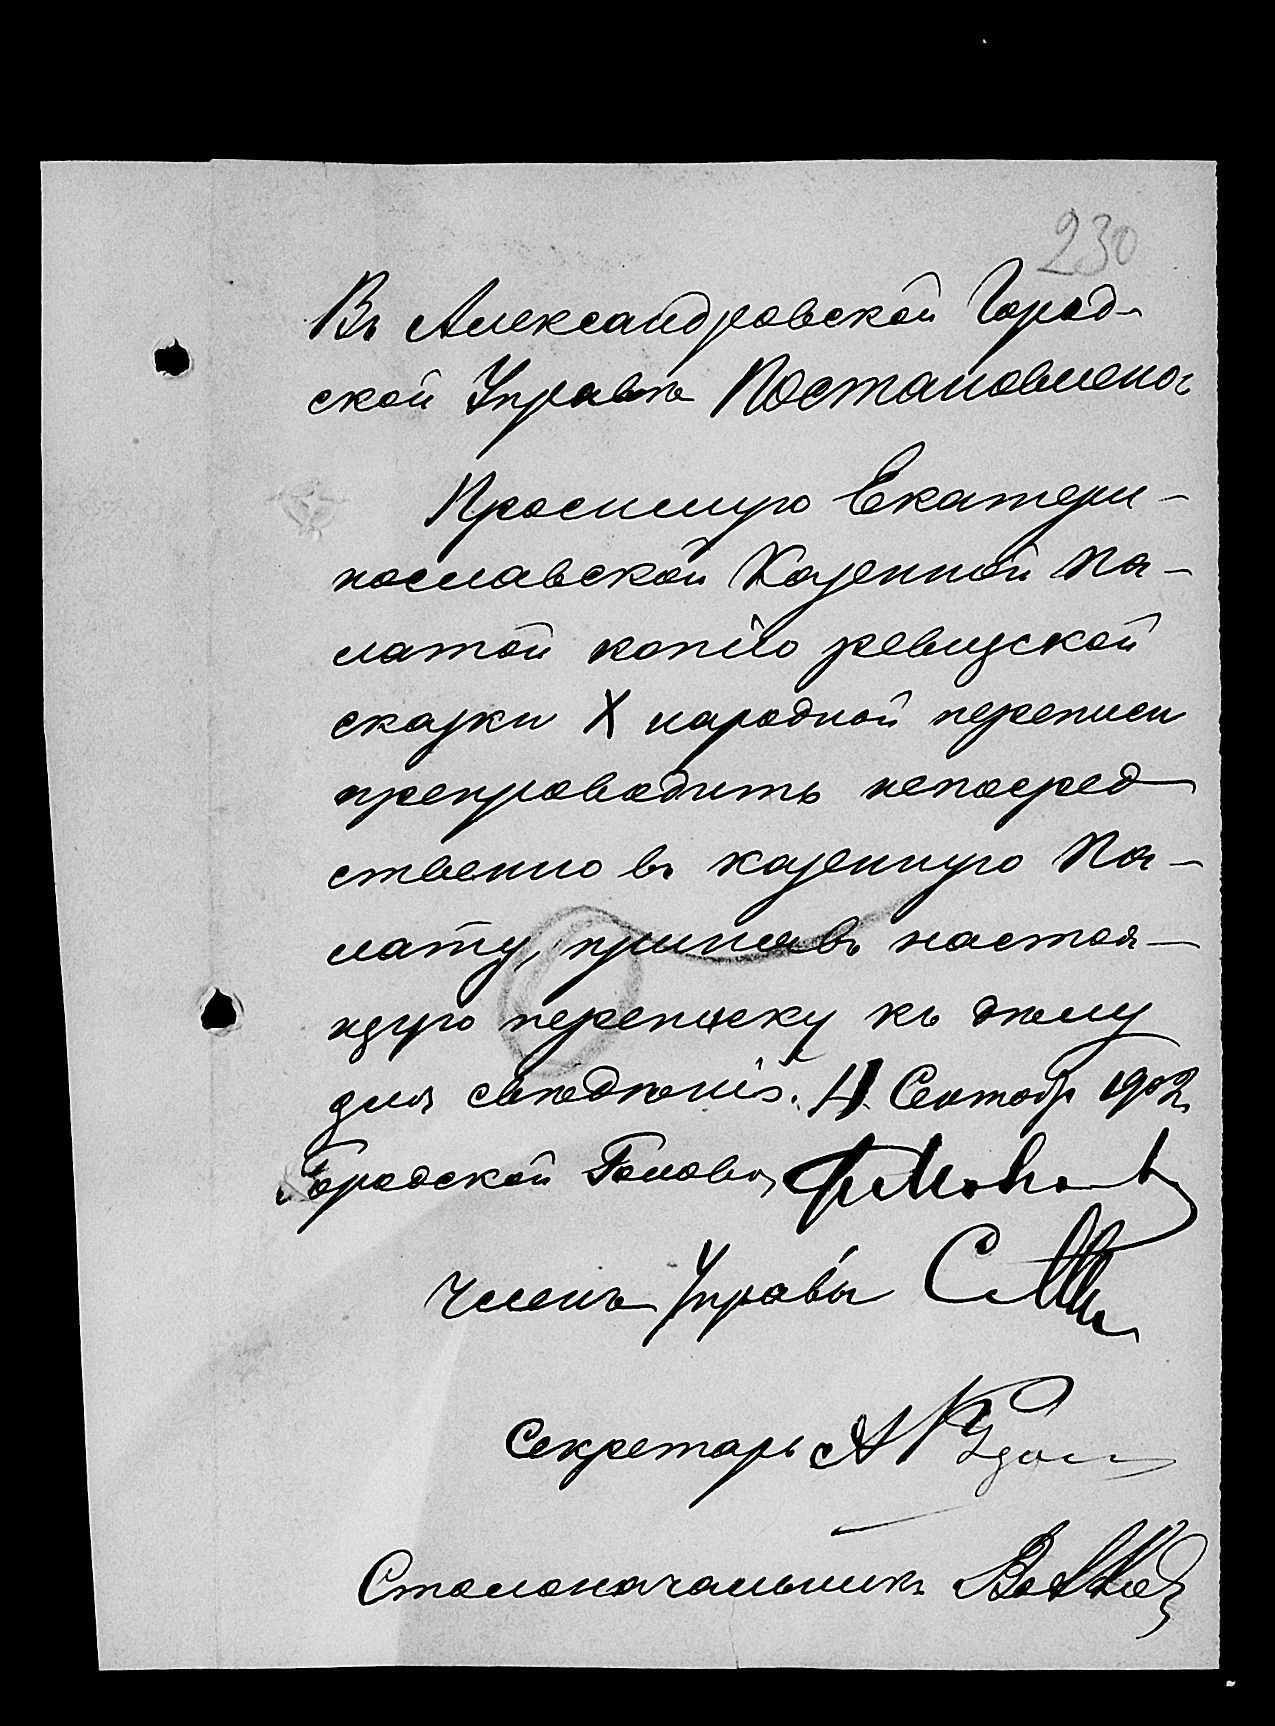 230
Въ Александровской Город-
ской Управѣ Постановлено:
Просимую Екатери-
нославской Казенной Па-
латой копію ревизской
сказки X народной переписи
препроводить непосред-
ственно въ казенную Па-
лату, принявъ настоя-
щую переписку къ дѣлу
для свѣдѣнія. 4 Сентябр 1902
Городской Голова
Членъ Управы
Секретарь А
Столоначальникъ